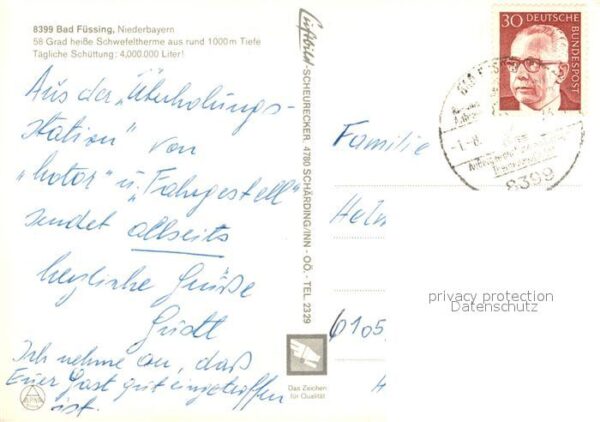 8399 Bad Füssing, Niederbayern
58 Grad heiße Schwefeltherme aus rund 1000 m Tiefe
Tägliche Schüttung: 4,000.000 Liter!
Aus der „Überholungs-
station" von
„Motor" u. „Fahrgestell"
sendet allseits
herzliche Grüße
Gustl
Ich nehme an, daß
Euer Gast gut eingetroffen
ist.
Luftbild-SCHEURECKER 4780 SCHÄRDING/INN - OÖ. - TEL 2329
Das Zeichen
für Qualität
30 DEUTSCHE
BUNDESPOST
8399
Familie
privacy protection
Datenschutz